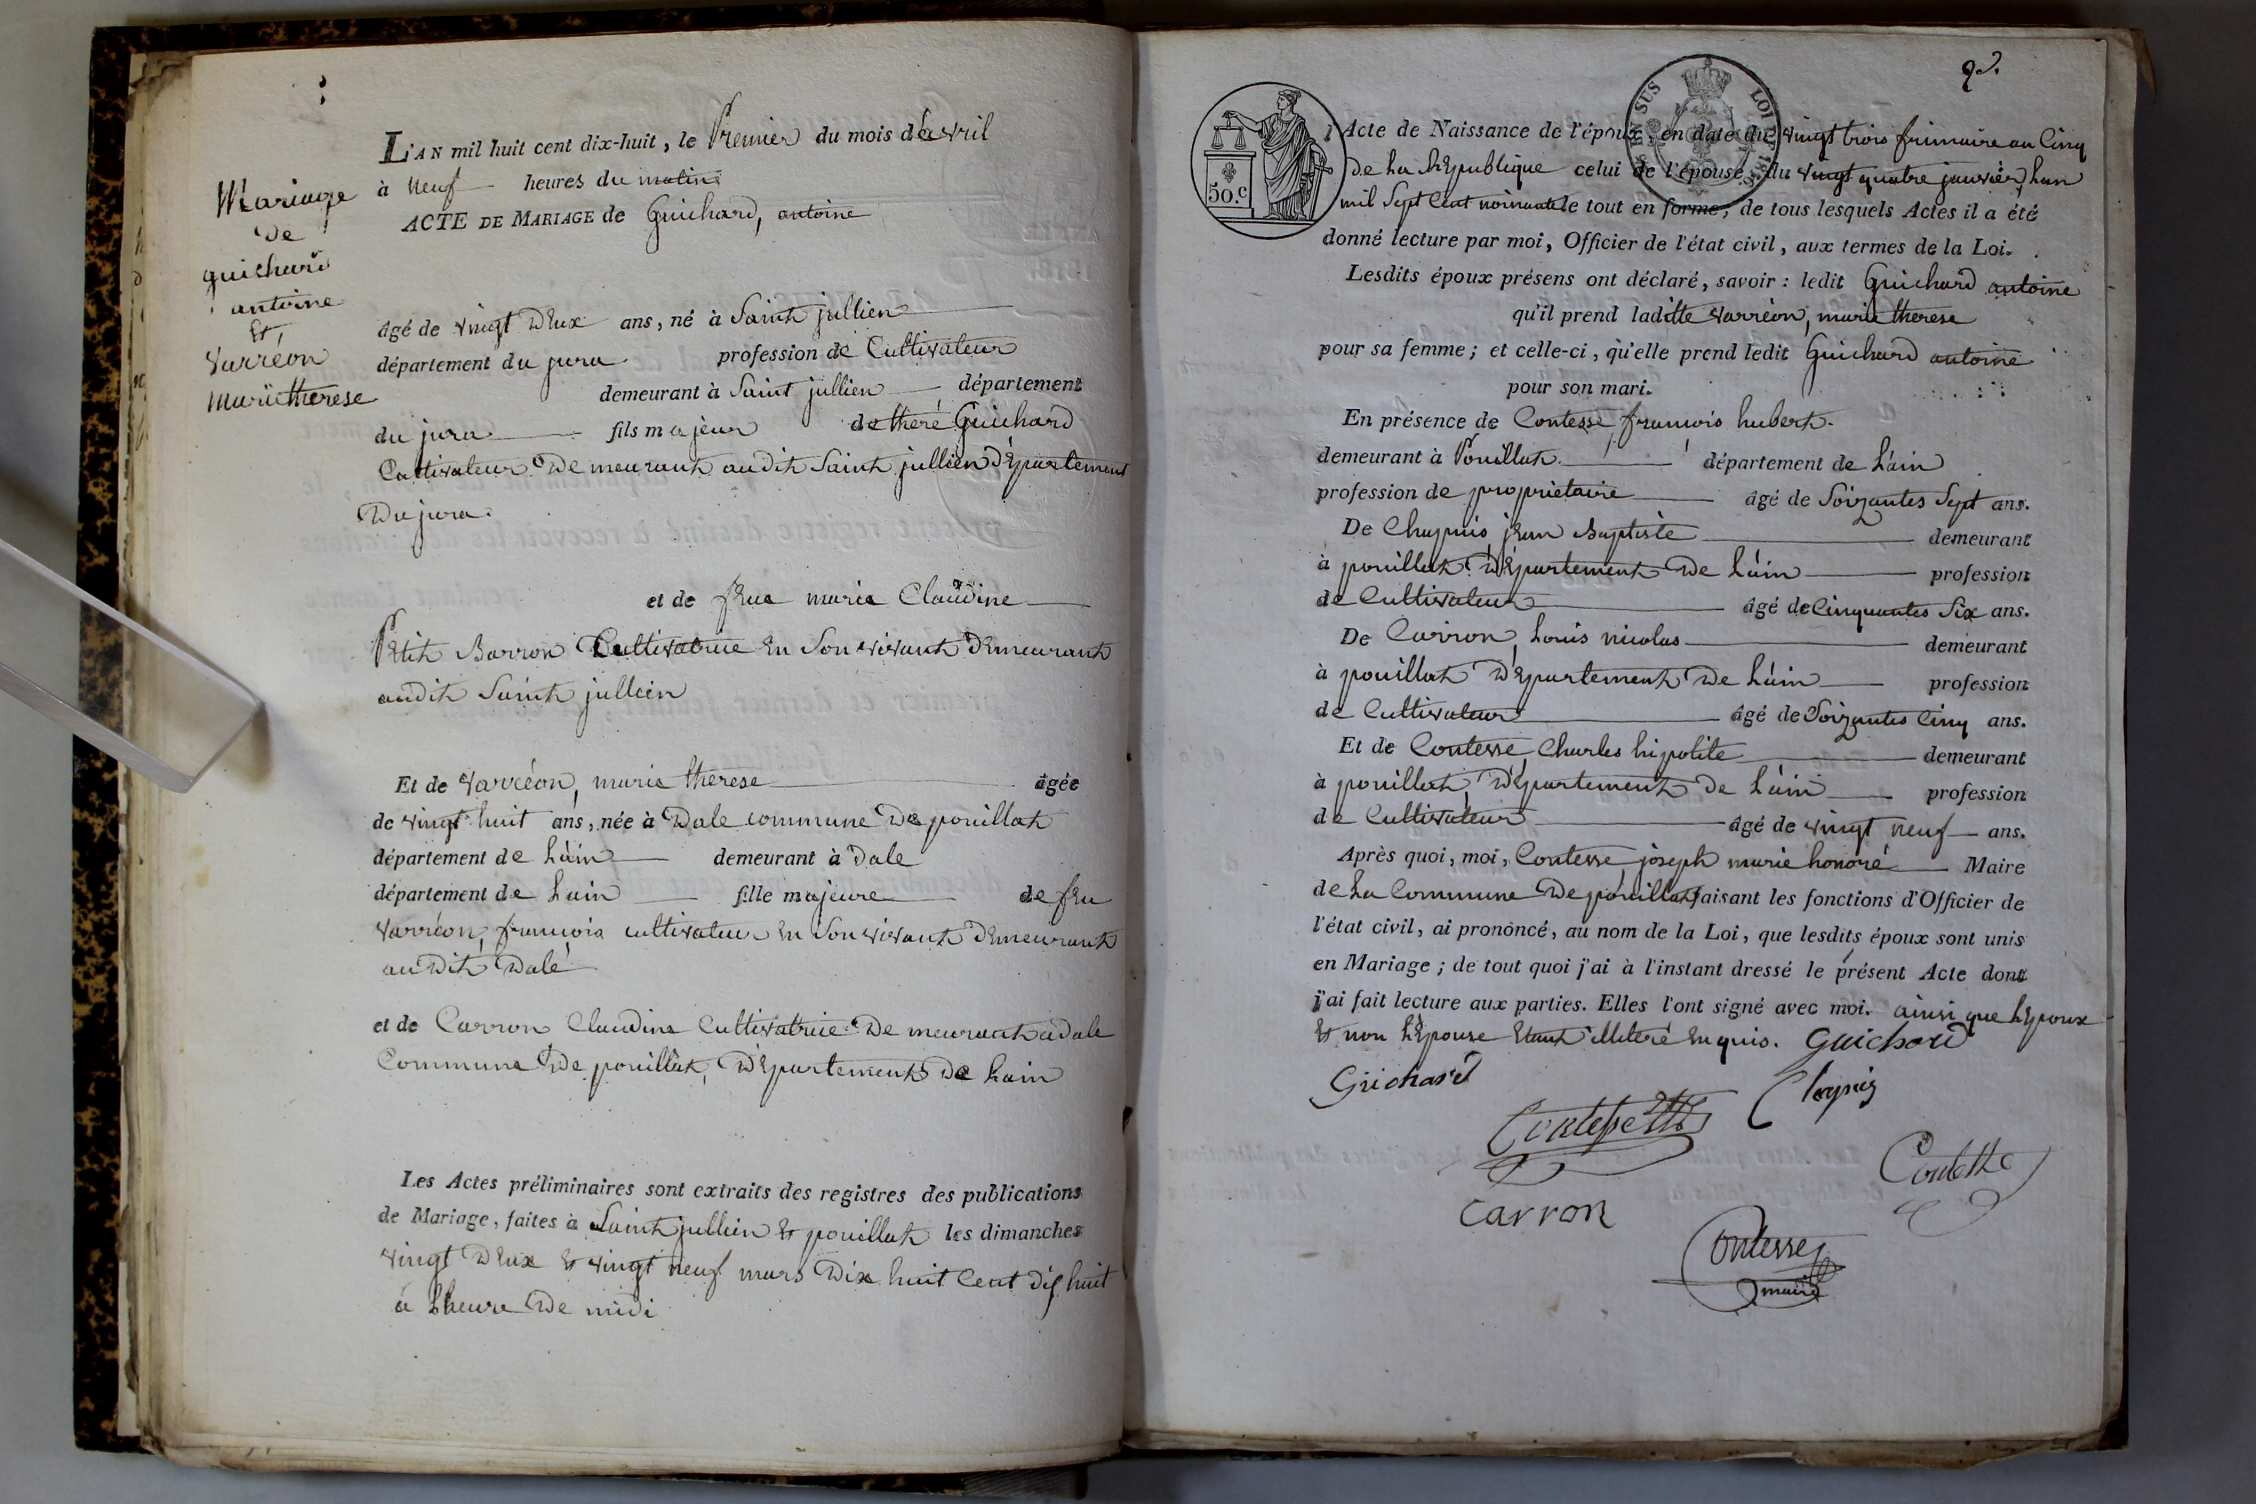 L'AN mil huit cent dix-huit, le Premier du mois d'avril
à neuf heures du matin
ACTE DE MARIAGE de Guichard, antoine
Mariage
de
guichard
antoine
Et
varréon
marie therese
âgé de vingt deux ans, né à Saint jullien
département du jura profession de Cultivateur
demeurant à Saint jullien département
du jura fils majeur de Guichard
Cultivateur demeurant audit Saint jullien département
Du jura.
et de feue marie Claudine
Petit Barron Cultivatrice En Son vivant Demeurant
audit Saint jullien
Et de varréon, marie therese âgée
de vingt huit ans, née à Dale commune De pouillat
département de L'ain demeurant à Dale
département de Lain fille majeure de feu
varréon, francois cultivateur En Son vivant Demeurant
au Dit Dale
et de Carron Claudine Cultivatrice Demeurant a Dale
Commune De pouillat, Département De Lain
Les Actes préliminaires sont extraits des registres des publications
de Mariage, faites à Saint jullien Et pouillat les dimanches
vingt Deux Et vingt neuf mars Dix huit Cent dix huit
a Lheure De midi
2e.
50.c
Acte de Naissance de l'époux, en date du vingt trois frimaire an Cinq
De La République celui de l'épouse, du vingt quatre janvier, Lan
mil Sept Cent le tout en forme; de tous lesquels Actes il a été
donné lecture par moi, Officier de l'état civil, aux termes de la Loi.
Lesdits époux présens ont déclaré, savoir: ledit Guichard antoine
qu'il prend ladite varréon, marie therese
pour sa femme; et celle-ci, qu'elle prend ledit Guichard antoine
pour son mari.
En présence de Contesse, francois hubert.
demeurant à Pouillat département de L'ain
profession de propriétaire âgé de Soizantes Sept ans.
De Chapuis, jean Baptiste demeurant
à pouillat Département De L'ain profession
de Cultivateur âgé de Cinquantes Six ans.
De Carron, Louis nicolas demeurant
à pouillat Département De L'ain profession
de Cultivateur âgé de Soizantes Cinq ans.
Et de Contesse, Charles hipolite demeurant
à pouillat, Département De L'ain profession
de Cultivateur âgé de vingt neuf ans.
Après quoi, moi, Contesse joseph marie honoré Maire
de La Commune De pouillat faisant les fonctions d'Officier de
l'état civil, ai prononcé, au nom de la Loi, que lesdits époux sont unis
en Mariage; de tout quoi j'ai à l'instant dressé le présent Acte dont
j'ai fait lecture aux parties. Elles l'ont signé avec moi. ainsi que LEpoux
Et non LEpouse Etant illiteré Enquis. Guichard
Guichard
Chapuis
Contesse
Contesse
Carron
Contesse
maire